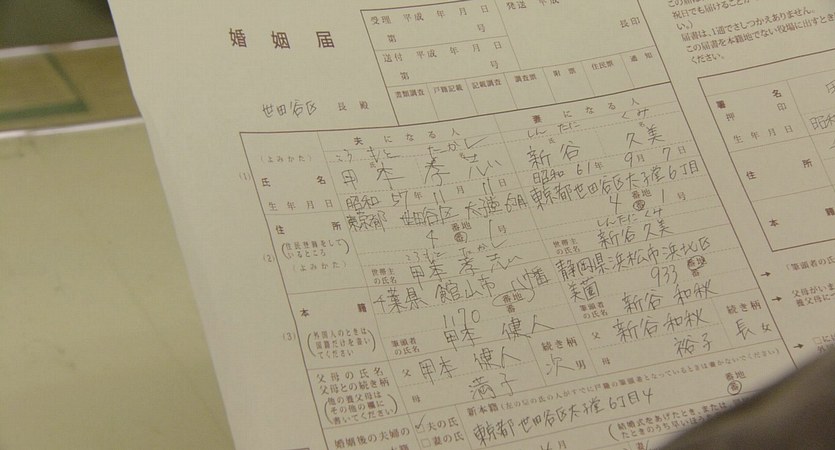 婚姻届
受理 平成 年 月 日
第 号
送付 平成 年 月 日
第 号
発送 平成
長印
書類調査 戸籍記載 記載調査 調査票 附票 住民票 通知
世田谷区 長 殿
夫になる人
妻になる人
(1)
(よみかた)
こうもと たかし
しんたに くみ
氏名
甲本 孝志
新谷 久美
生年月日
昭和 57年 11月 11日
昭和 61年 9月 7日
住所
東京都 世田谷区 太子堂 6丁目
東京都世田谷区太子堂6丁目
4 番地 1 号
4 番地 1 号
(2)
(住民登録をしているところ)
(よみかた)
こうもと たかし
しんたに くみ
世帯主の氏名
甲本 孝志
世帯主の氏名
新谷久美
本籍
千葉県 館山市 八幡
静岡県浜松市浜北区
1170 番地
美薗 933 番地
(3)
(外国人のときは国籍だけを書いてください)
筆頭者の氏名
甲本 健人
筆頭者の氏名
新谷 和秋
父母の氏名
父母との続き柄
(他の養父母はその他の欄に書いてください)
甲本 健人
続き柄
父 新谷 和秋
続き柄
母 満子
次 男
母 裕子
長 女
婚姻後の夫婦の
夫の氏
妻の氏
新本籍(左の☑の氏の人がすでに戸籍の筆頭者となっているときは書かないでください)
東京都世田谷区太子堂6丁目4
番地
祝日でも届けることが
い。)
届書は、1通でさしつかえありません。
この届書を本籍地でない役場に出すとき
ください。
署名
押印
生年月日
昭和
住所
本籍
(筆頭者の氏
父母がいま
養父母に